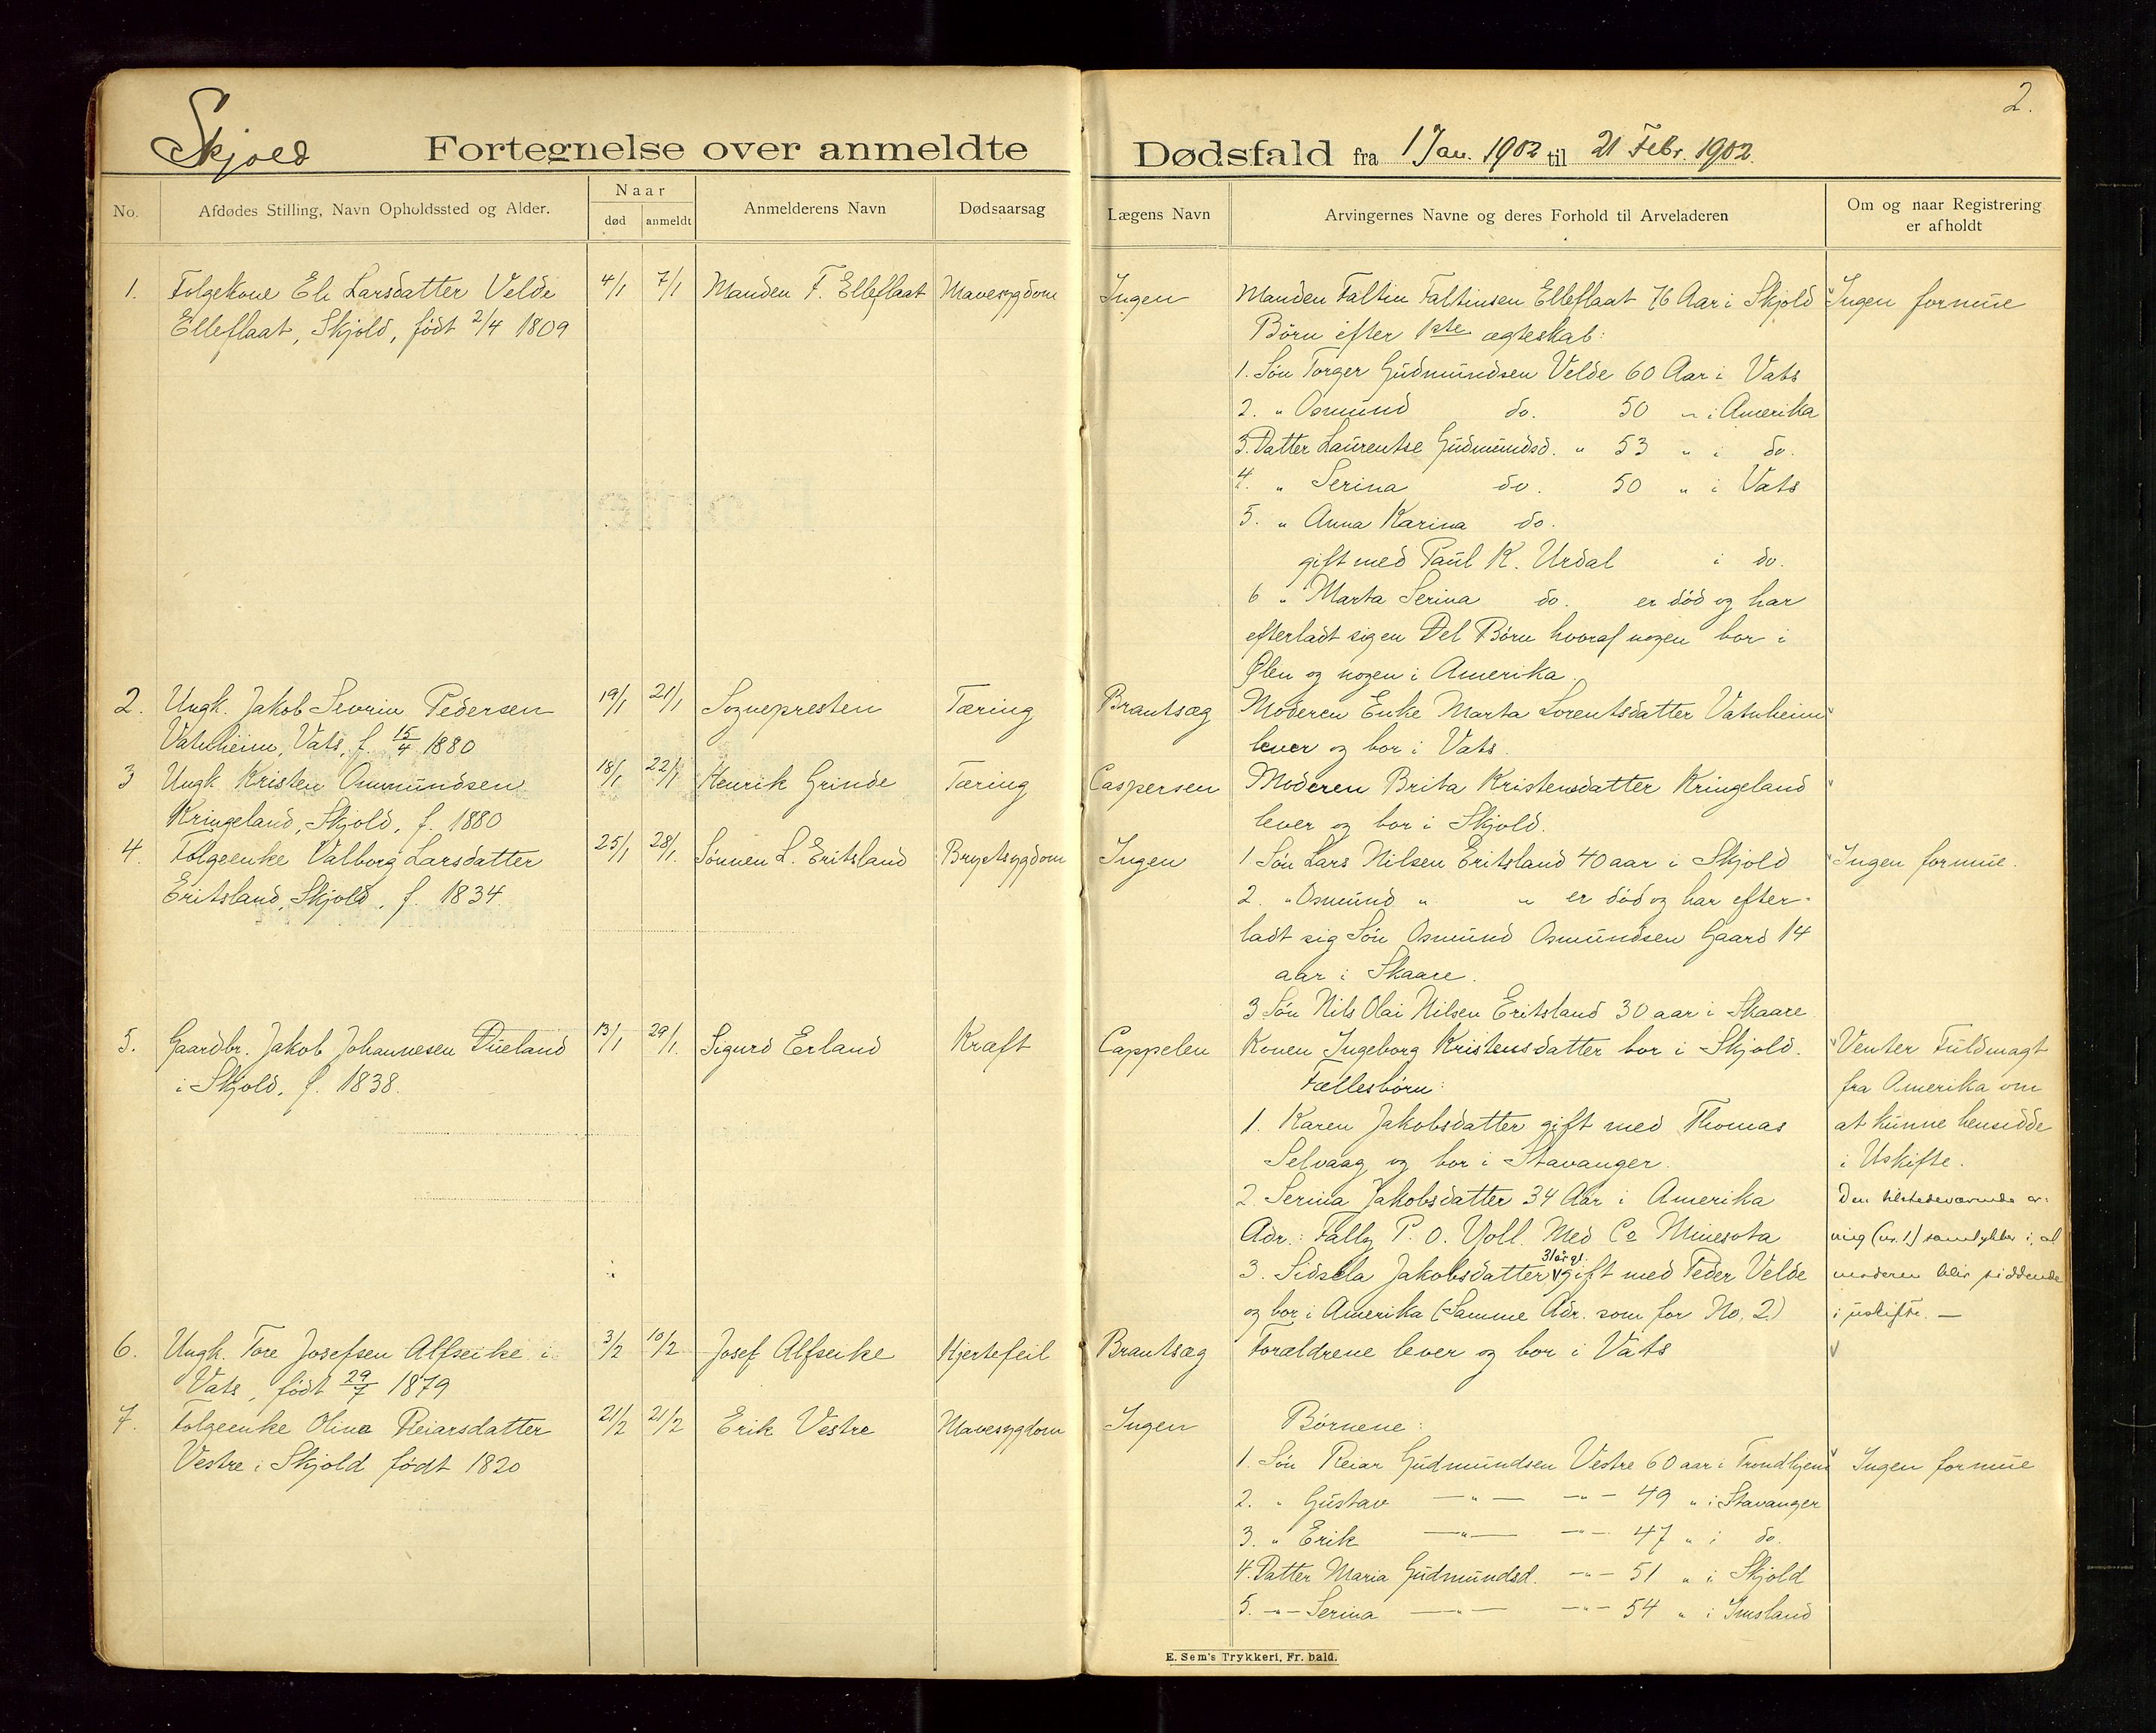 2.
Skjold Fortegnelse over anmeldte Dødsfald fra 1 Jan. 1902 til 21 Febr. 1902.
No.
Afdødes Stilling, Navn Opholdssted og Alder.
Naar
død anmeldt
Anmelderens Navn
Dødsaarsag
Lægens Navn
Arvingernes Navne og deres Forhold til Arveladeren
Om og naar Registrering
er afholdt
1. Folgekone Eli Larsdatter Velde 4/1 7/1 Manden F. Elleflaat Mavesygdom Ingen Manden Faltin Faltinsen Elleflaat 76 Aar i Skjold Ingen formue
Elleflaat, Skjold, født 2/4 1809 Børn efter 1ste ægteskab:
1. Søn Torger Gudmundsen Velde 60 Aar i Vats
2. " Osmund do. 50 " i Amerika
3. Datter Laurentse Gudmundsd. " 53 " i do.
4. " Serina do. 50 " i Vats
5. " Anna Karina do.
gift med Paul K. Urdal i do.
6 " Marta Serina do. er død og har
efterladt sig en Del Børn hvoraf nogen bor i
Ølen og nogen i Amerika.
2. Ungk. Jakob Sevrin Pedersen 19/1 21/1 Sognepresten Tæring Brantsæg Moderen Enke Marta Lorentsdatter Vatnheim
Vatnheim, Vats, f. 15/4 1880 lever og bor i Vats.
3 Ungk Kristen Ommundsen 18/1 22/1 Henrik Grinde Tæring Caspersen Moderen Brita Kristensdatter Kringeland
Kringeland, Skjold, f. 1880 lever og bor i Skjold.
4. Folgeenke Valborg Larsdatter 25/1 28/1. Sønnen L. Eritsland Brystsygdom Ingen 1 Søn Lars Nilsen Eritsland 40 aar i Skjold Ingen formue.
Eritsland, Skjold, f. 1834. 2. " Osmund " " er død og har efter-
ladt sig Søn Osmund Osmundsen Gaard 14
aar i Skaare.
3 Søn Nils Olai Nilsen Eritsland 30 aar i Skaare
5. Gaardbr. Jakob Johannesen Dueland 13/1 29/1. Sigurd Erland Kræft Cappelen Konen Ingeborg Kristensdatter bor i Skjold. Venter Fuldmagt
i Skjold, f. 1838. Fællesbørn: fra Amerika om
1. Karen Jakobsdatter gift med Thomas at kunne hensidde
Selvaag og bor i Stavanger. i Uskifte.
2. Serina Jakobsdatter 34 Aar i Amerika Den tilstedeværende ar-
Adr.: Fally P. O. Yoll. Med Co Minesota ving (nr. 1) samtykker i, at
31 år gl.
3. Sidsela Jakobsdatter, gift med Peder Velde moderen blir siddende
og bor i Amerika (Samme Adr. som for No. 2) i uskifte. —
6. Ungk. Tore Josefsen Alfseike i 3/2 10/2 Josef Alfseike Hjertefeil Brantsæg Forældrene lever og bor i Vats
Vats, født 29/7 1879
7. Folgeenke Olina Reiarsdatter 21/2 21/2 Erik Vestre Mavesygdom Ingen Børnene:
Vestre i Skjold født 1820 1. Søn Reiar Gudmundsen Vestre 60 aar i Trondhjem Ingen formue
2. " Gustav —"— —"— 49 " i Stavanger
3. " Erik —"— —"— 47 " i do.
4. Datter Maria Gudmundsd. —"— 51 " i Skjold
5. —"— Serina —"— —"— 54 " i Imsland
E. Sem's Trykkeri, Fr. hald.